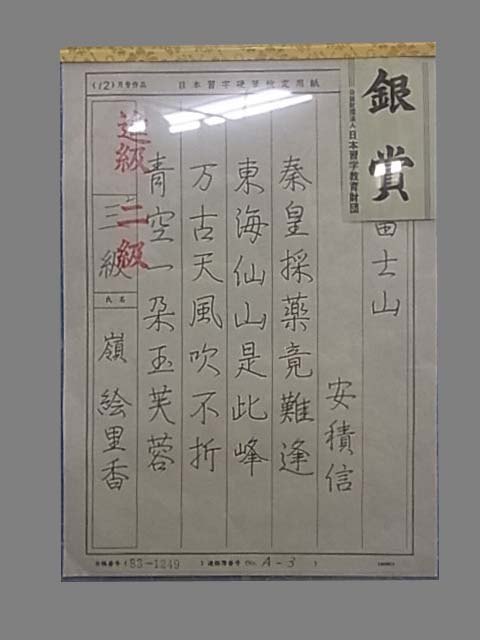 (12)月号作品
日本習字硬筆検定用紙
銀賞
公益財団法人日本習字教育財団
富士山
安積信
秦皇採薬竟難逢
東海仙山是此峰
万古天風吹不折
青空一朶玉芙蓉
進級二級
三級
氏名
嶺絵里香
会員番号(93-1249
)連絡簿番号(No. A-3 )